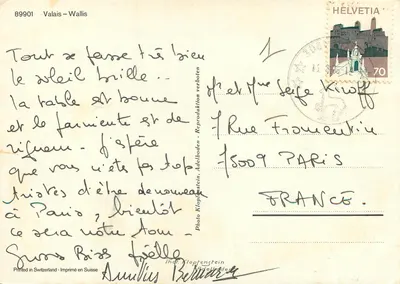 89901 Valais – Wallis
HELVETIA
70
1
Tout se passe très bien
le soleil brille..
la table est bonne
et le farniente est de
rigueur. j'espère
que vous n'êtes pas trop
tristes d'être de nouveau
à Paris, bientôt
ce sera notre tour –
Gross Bises
Mr et Mme Serge Kiroff
1 Rue Fromentin
75009 PARIS
FRANCE.
Photo Klopfenstein, Adelboden - Reproduktion verboten
Printed in Switzerland · Imprimé en Suisse